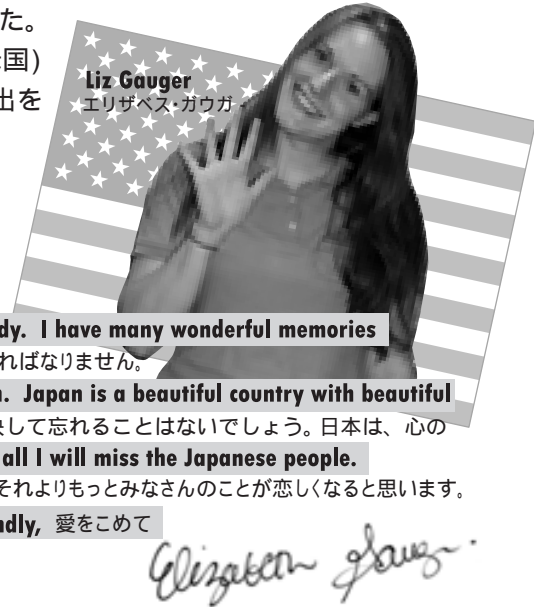 た。
国)
出を
Liz Gauger
エリザベス・ガウガー
dy. I have many wonderful memories
ればなりません。
n. Japan is a beautiful country with beautiful
決して忘れることはないでしょう。日本は、心の
all I will miss the Japanese people.
それよりもっとみなさんのことが恋しくなると思います。
ndly, 愛をこめて
Elizabeth Gauger